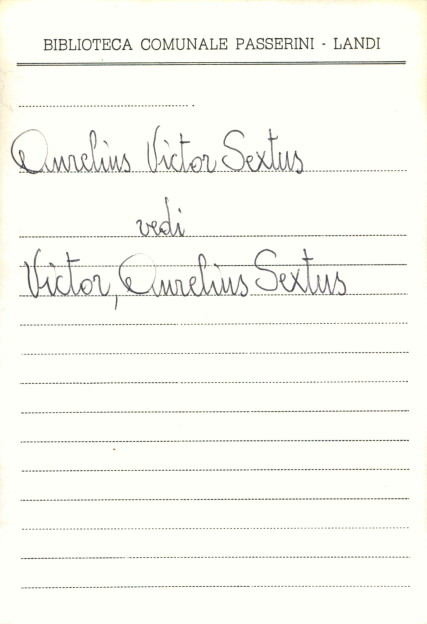 BIBLIOTECA COMUNALE PASSERINI - LANDI
Aurelius Victor Sextus
vedi
Victor, Aurelius Sextus